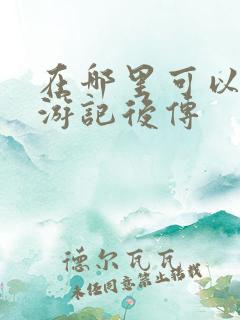 在那里可以
游記後傳
德尔瓦瓦
未经同意禁止转载